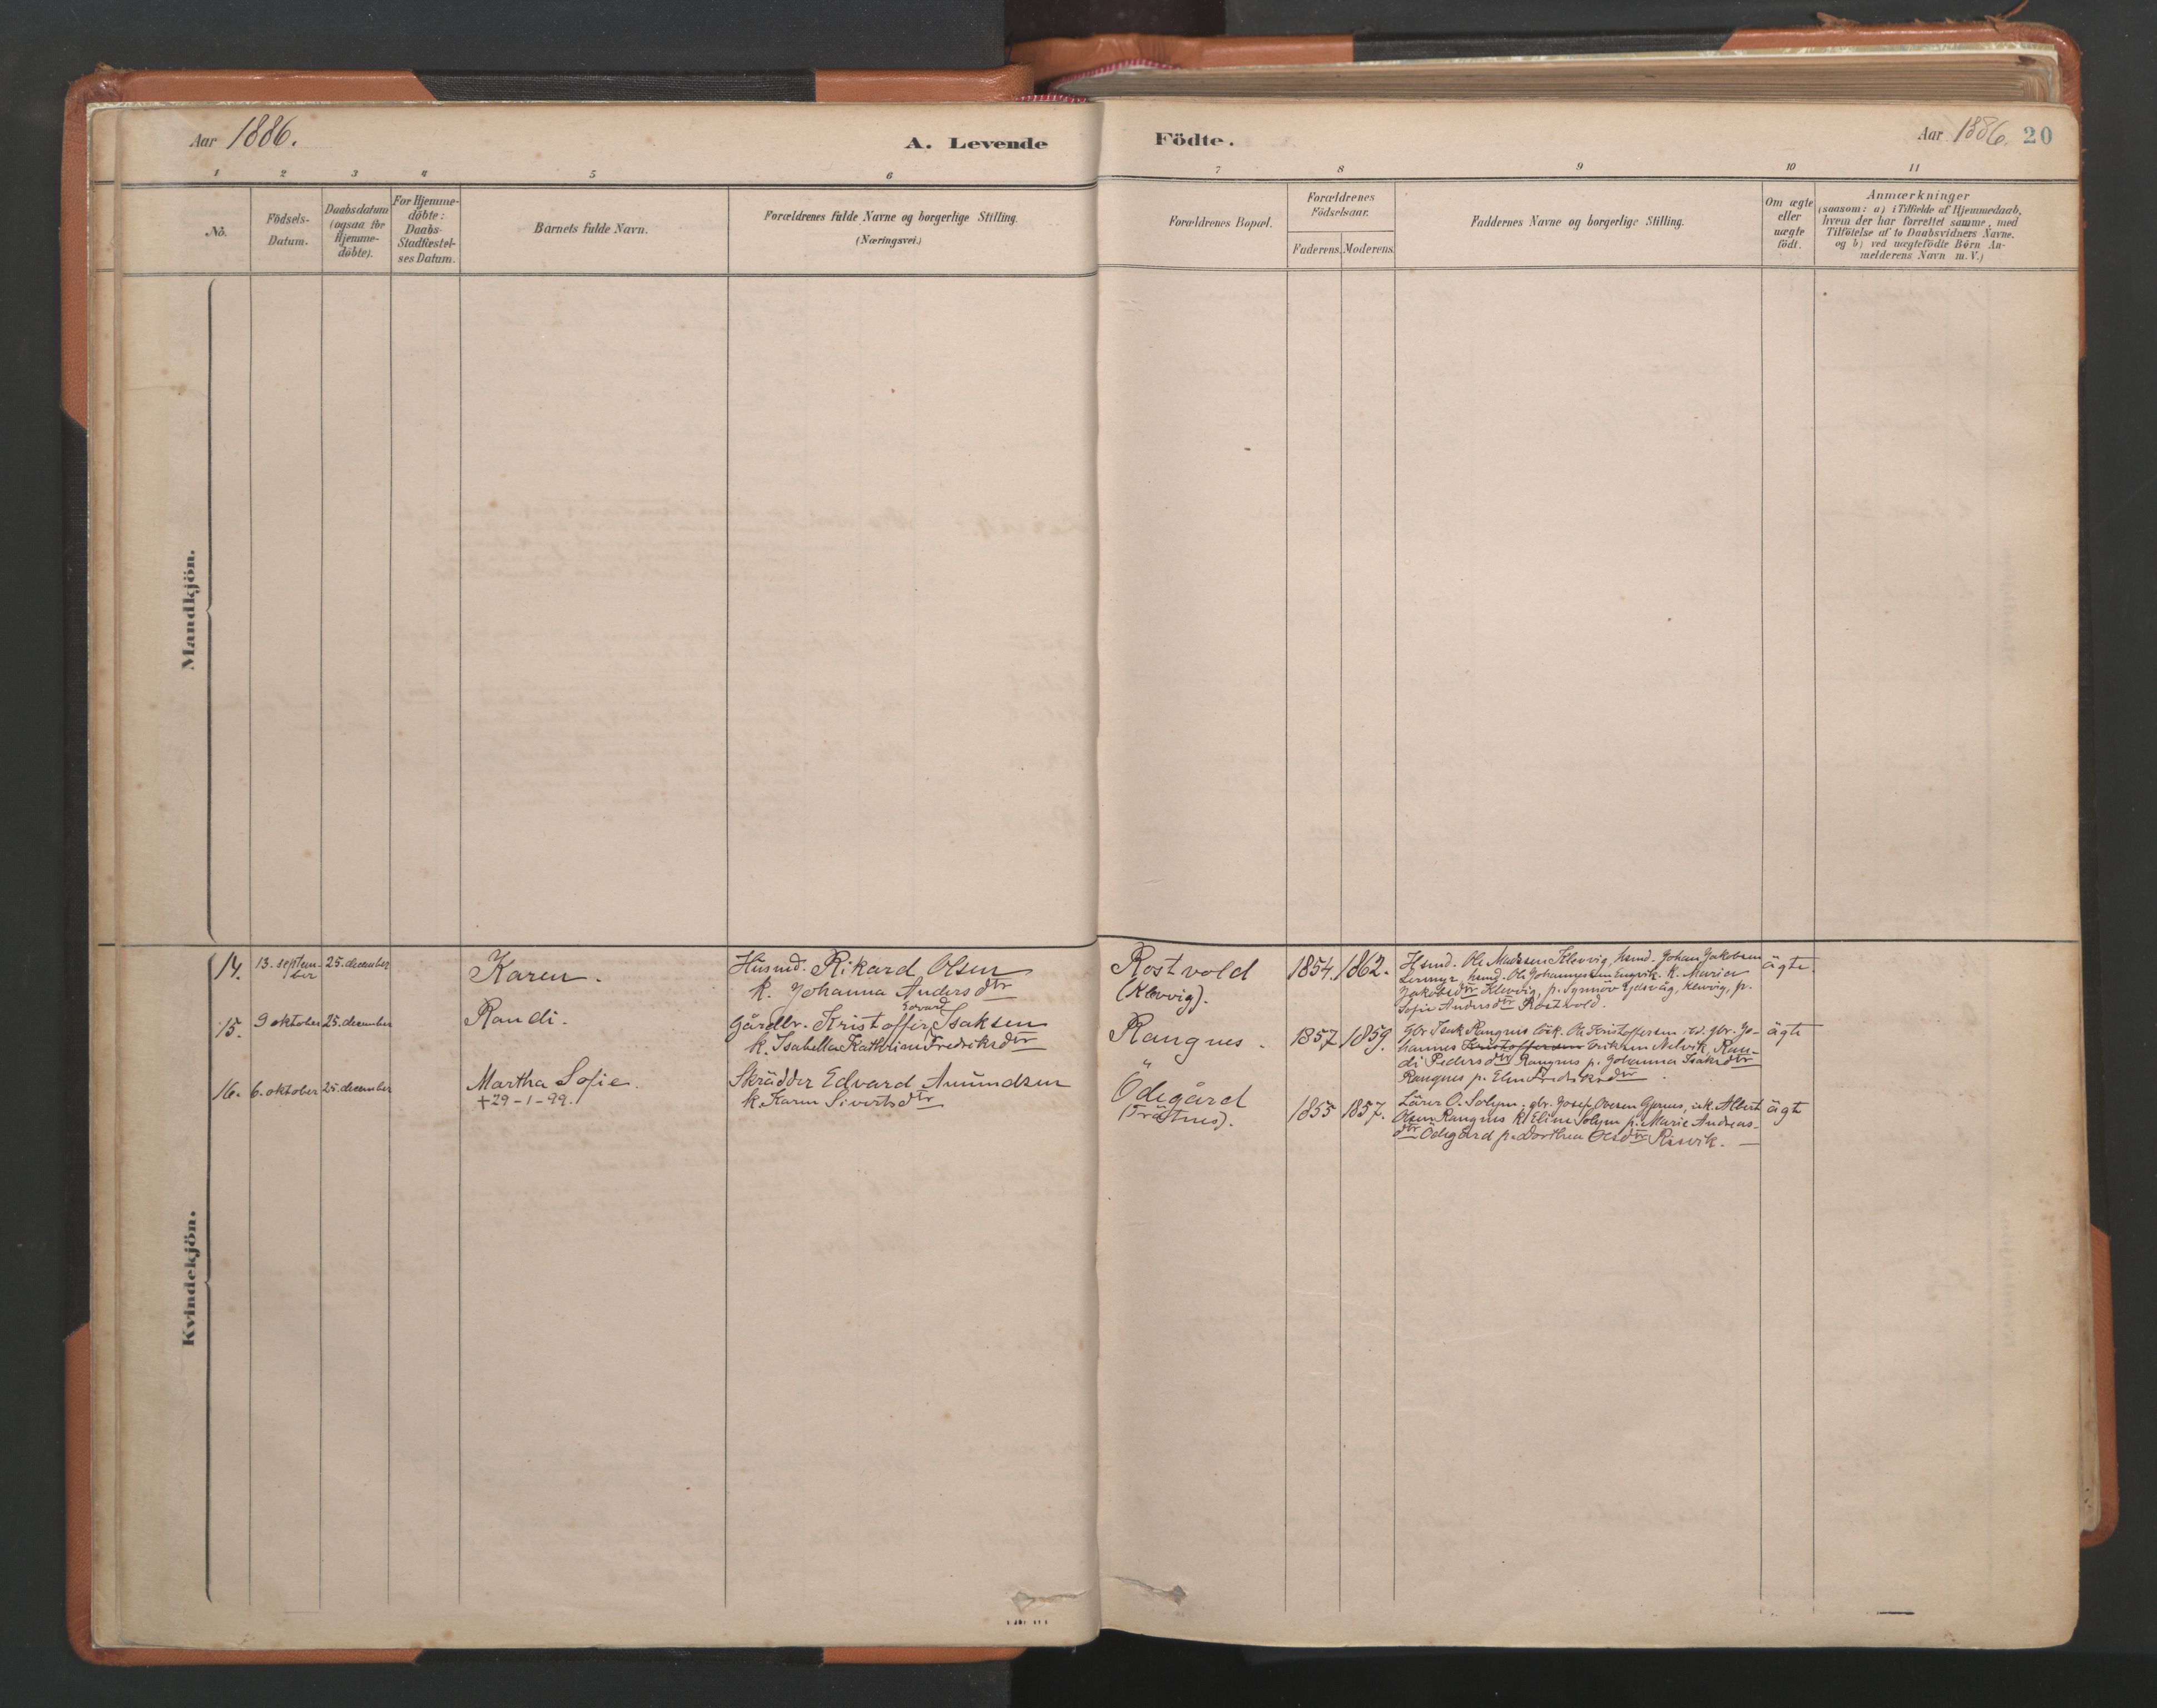 Aar 1886.
A. Levende
Födte.
Aar 1886. 20
1 2 3 4 5 6 7 8 9 10 11
No.
Födsels-
Datum.
Daabsdatum
(ogsaa for
Hjemme-
döbte).
For Hjemme-
döbte:
Daabs-
Stadfæstel-
ses Datum.
Barnets fulde Navn.
Forældrenes fulde Navne og borgerlige Stilling.
(Næringsvei.)
Forældrenes Bopæl.
Forældrenes
Födselsaar.
Faderens. Moderens.
Faddernes Navne og borgerlige Stilling.
Om ægte
eller
uægte
födt.
Anmærkninger
(saasom: a) i Tilfælde af Hjemmedaab,
hvem der har forrettet samme, med
Tilföielse af to Daabsvidners Navne.
og b) ved uægtefödte Börn An-
melderens Navn m. V.)
Mandkjön.
Kvindekjön.
14.
13. septem-
ber
25. december
Karen.
Husmd. Rikard Olsen
k. Johanna Andersdtr
Rostvold
(Klevvig).
1854. 1862.
Hsmd. Ole Madssen Klevvig, husmd. Johan Jakobsen
husmd. Ole Johannessen Engvik. k. Maria
Jakobsdtr Klevvig, p. Synnöv Klevvig, p.
Sofie Andersdtr Rostvold.
ägte.
15.
9 oktober
25. december
Randi.
Edvard
Gårdbr. Kristoffer Isaksen
k. Isabella Kathrine Fredriksdtr
Rangnes.
1857 1859.
Gbr Isak Rangnes Ole Kristoffersen gbr. Jo-
hannes Kristoffersen Eriksen Nelvik, Ran-
di Pedersdtr Rangnes p. Johanna Isaksdtr
Rangnes p. Elen Fredriksdtr.
ägte
16.
6. oktober
25. december
Martha Sofie.
+29-1-99.
Skrädder Edvard Amundsen
k. Karen Sivertsdtr
Ödegård
(Trästnes).
1855 1857.
Lärer O. Solem. gbr. Josef Ovesen Gjernes, Albert
Olsen Rangnes k. Eline Solem p. Marie Andreas-
dtr Ödegård p. Dorthea Olsdtr Risvik.
ägte